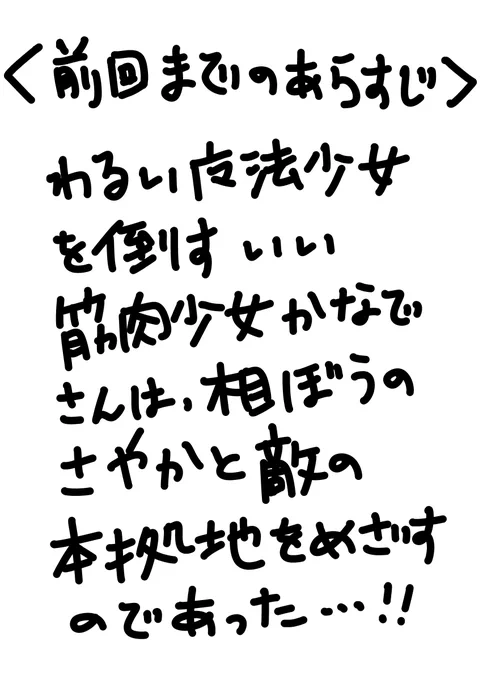 <前回までのあらすじ>
わるい魔法少女
を倒す いい
筋肉少女かなで
さんは、相ぼうの
さやかと敵の
本拠地をめざす
のであった…!!